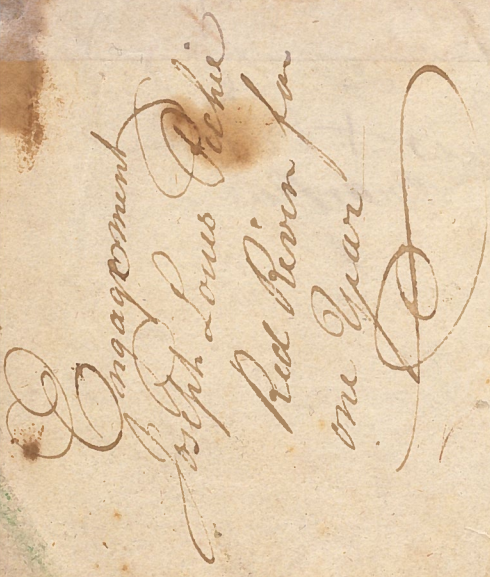 Engagement
Joseph Louis
Red River for
one Year